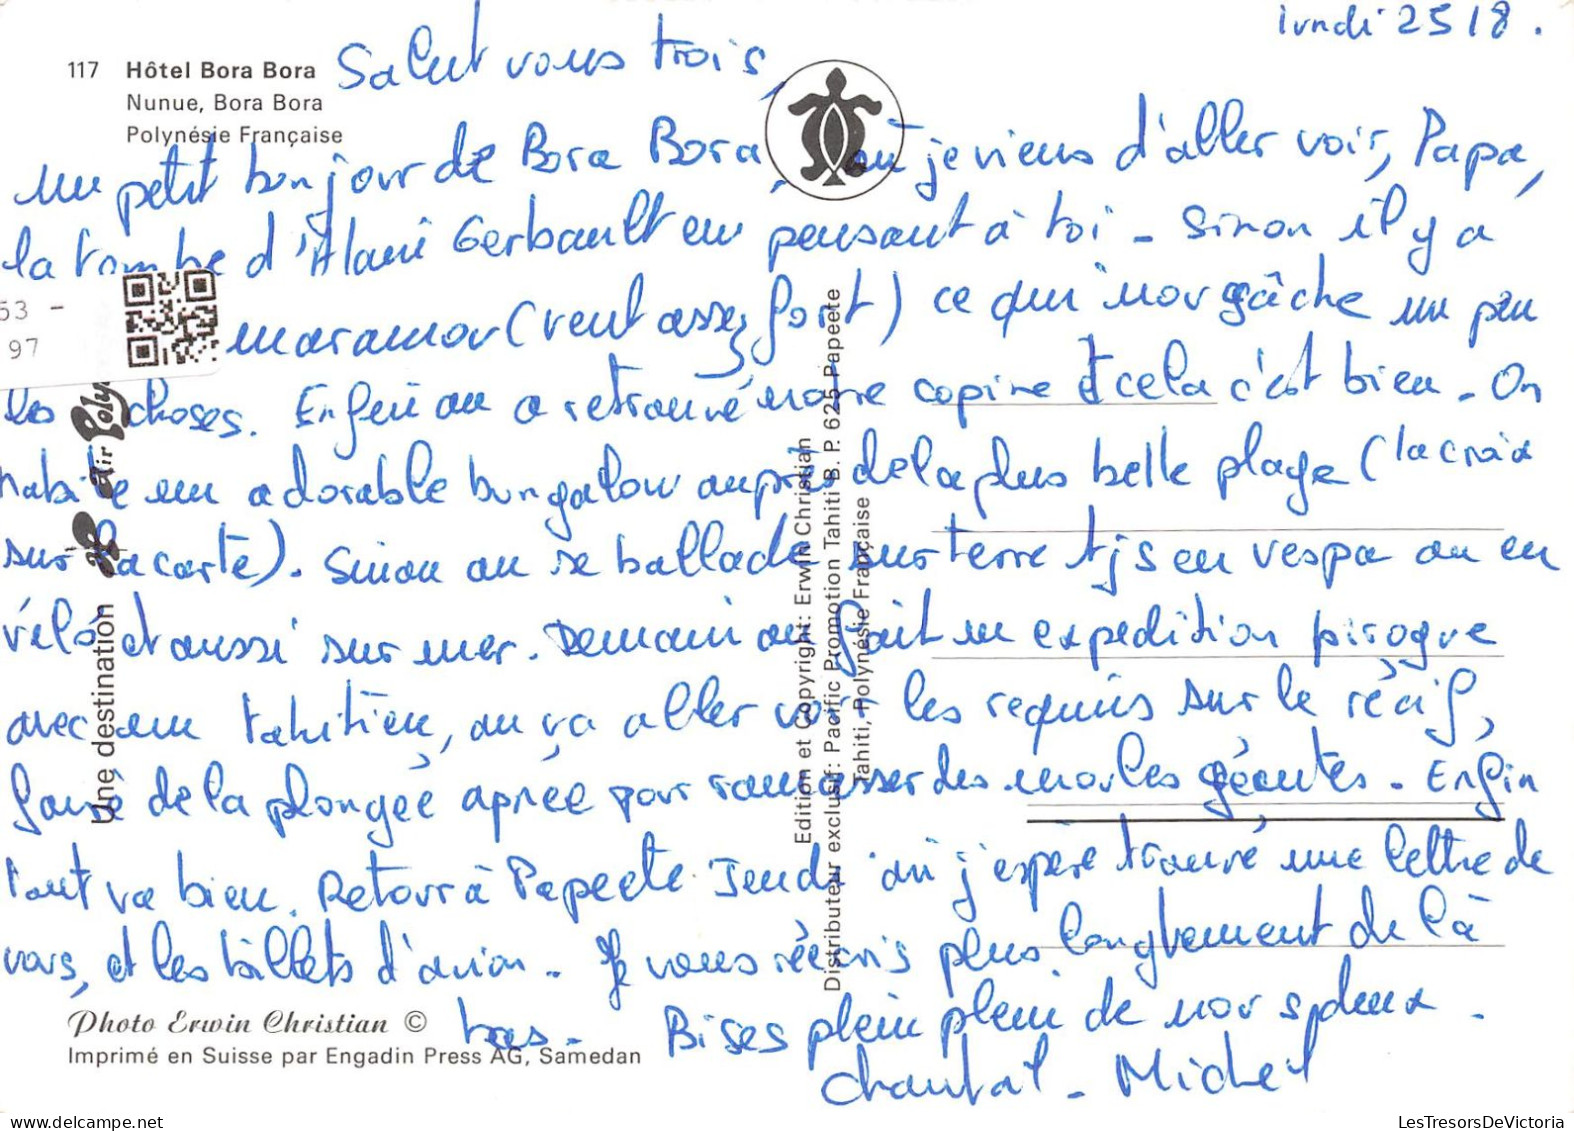 lundi 25/8.
117 Hôtel Bora Bora
Nunue, Bora Bora
Polynésie Française
Salut vous trois,
un petit bonjour de Bora Bora où je viens d'aller voir, Papa,
la tombe d'Alain Gerbault en pensant à toi - Sinon il y a
maramou (vent assez fort) ce qui nous gâche un peu
les choses. Enfin on a retrouvé notre copine et cela c'est bien - On
habite un adorable bungalow auprès de la plus belle plage (la croix
sur la carte). Sinon on se ballade sur terre tjs en vespa ou en
vélo et aussi sur mer. Demain on fait un expedition pirogue
avec un tahitien, on va aller voir les requins sur le récif,
faire de la plongée apnée pour ramasser des moules géantes - Enfin
tout va bien. Retour à Papeete Jeudi où j'espère trouvé une lettre de
vous, et les billets d'avion - Je vous réécris plus longuement de là
bas - Bises plein plein de nous deux -
Chantal - Michel
53 -
97
Une destination air Poly
Edition et Copyright: Erwin Christian
Distributeur exclusif: Pacific Promotion Tahiti B. P. 625 Papeete
Tahiti, Polynésie Française
Photo Erwin Christian ©
Imprimé en Suisse par Engadin Press AG, Samedan
www.delcampe.net
LesTresorsDeVictoria